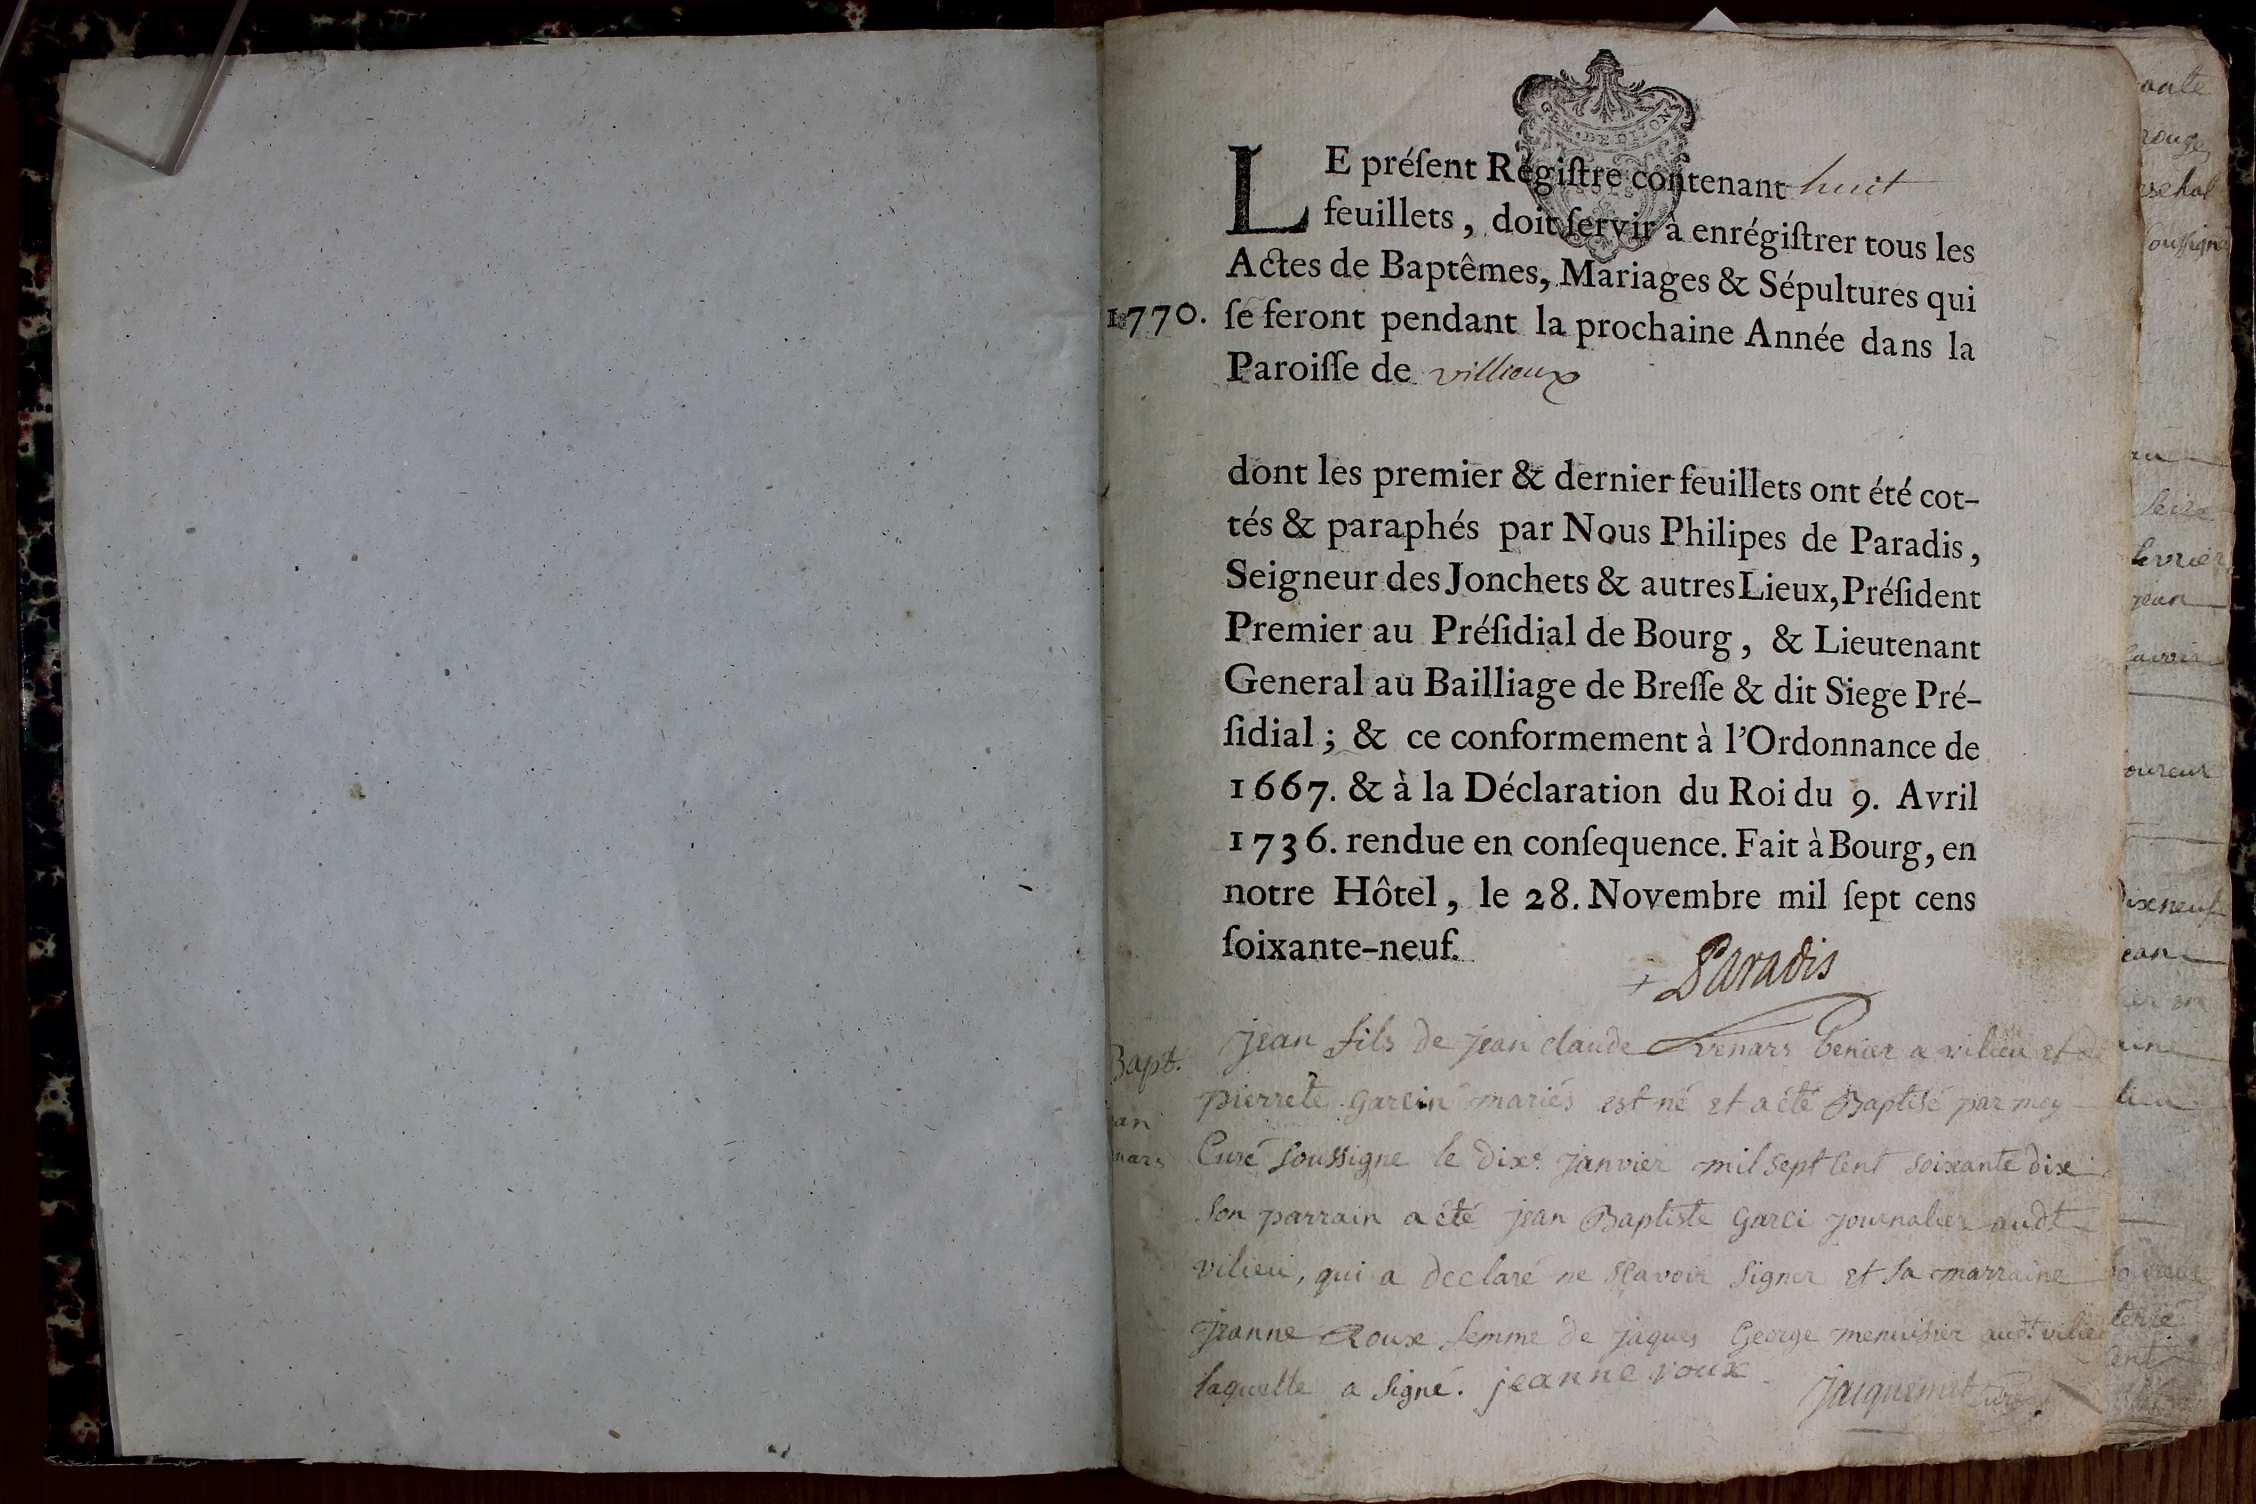 GEN. DE DIJON
LE préſent Régiſtre contenant huit
feuillets, doit ſervir à enrégiſtrer tous les
Actes de Baptêmes, Mariages & Sépultures qui
1770. ſe feront pendant la prochaine Année dans la
Paroiſſe de villieux
dont les premier & dernier feuillets ont été cot-
tés & paraphés par Nous Philipes de Paradis,
Seigneur des Jonchets & autres Lieux, Préſident
Premier au Préſidial de Bourg, & Lieutenant
General au Bailliage de Breſſe & dit Siege Pré-
ſidial; & ce conformement à l'Ordonnance de
1667. & à la Déclaration du Roi du 9. Avril
1736. rendue en conſequence. Fait à Bourg, en
notre Hôtel, le 28. Novembre mil ſept cens
ſoixante-neuf.
Paradis
Bapt.
jean fils de jean claude venars a vilieu et de
pierrete garcin mariés est né et a été Baptisé par moy
Curé soussigne le dixe. janvier mil sept cent soixante dix
son parrain a été jean Baptiste garci journalier audt
vilieu, qui a declaré ne sçavoir signer et sa marraine
jeanne Roux femme de jaques George menuisier audt. vilieu
laquelle a signé. jeanne roux
jacquemet curé